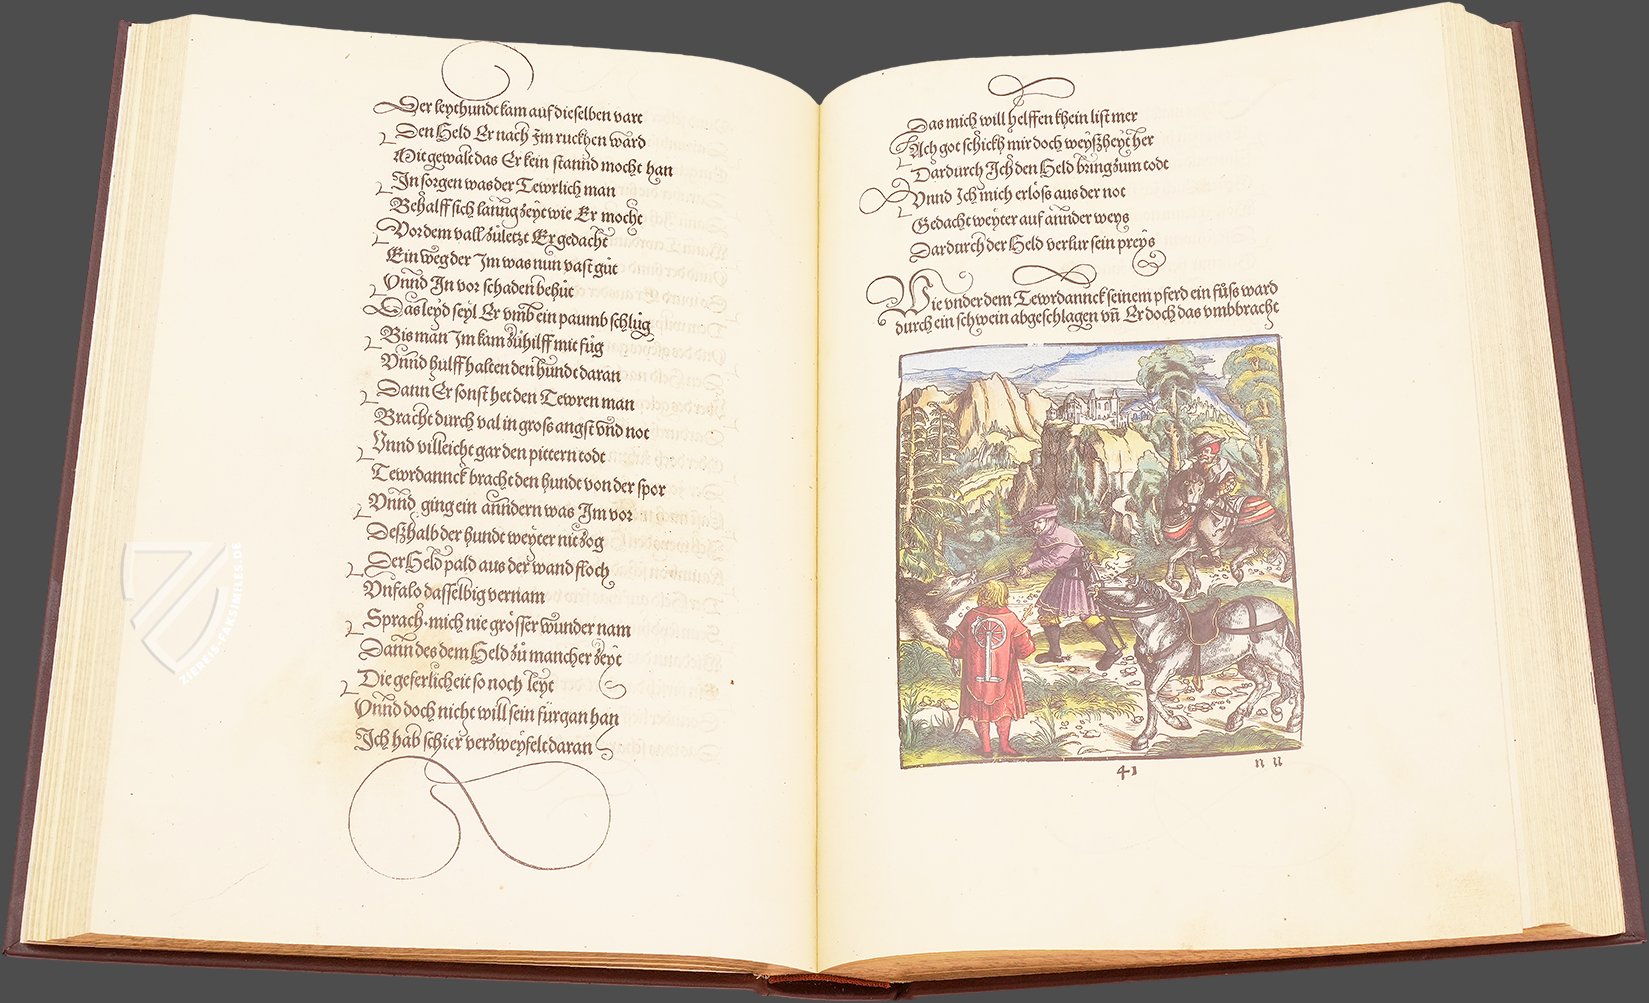 Der leythundt kam auf dieselben vart
Den Held Er nach Im ruckhen ward
Mit gewalt das Er kein stannd mocht han
In sorgen was der Tewrlich man
Behalff sich lanng zeyt wie Er mocht
Vor dem vall zůletzt Er gedacht
Ein weg der Im was nun vast gůt
Vnnd In vor schaden behůt
Das leyd seyl Er vmb ein paumb schlůg
Bis man Im kam zůhilff mit fůg
Vnnd hulff halten den hundt daran
Dann Er sonst het den Tewren man
Bracht durch val in gross angst vnd not
Vnnd villeicht gar den pittern todt
Tewrdannck bracht den hundt von der spor
Vnnd ging ein anndern was Im vor
Deßhalb der hundt weyter nit zog
Der Held pald aus der wand floch
Vnfalo dasselbig vernam
Sprach mich nie grösser wunder nam
Dann des dem Held zů mancher zeyt
Die geferlicheit so noch leyt
Vnnd doch nicht will sein fürgan han
Ich hab schier verzweyfelt daran
Das mich will helffen khein list mer
Ach got schickh mir doch weyßheyt her
Dardurch Ich den Held bring zum todt
Vnnd Ich mich erlöss aus der not
Gedacht weyter auf annder weys
Dardurch der Held verlur sein preys
Wie vnder dem Tewrdannck seinem pferd ein fůss ward
durch ein schwein abgeschlagen vn̄ Er doch das vmbbracht
41
n ii
ZIEREIS-FAKSIMILES.DE